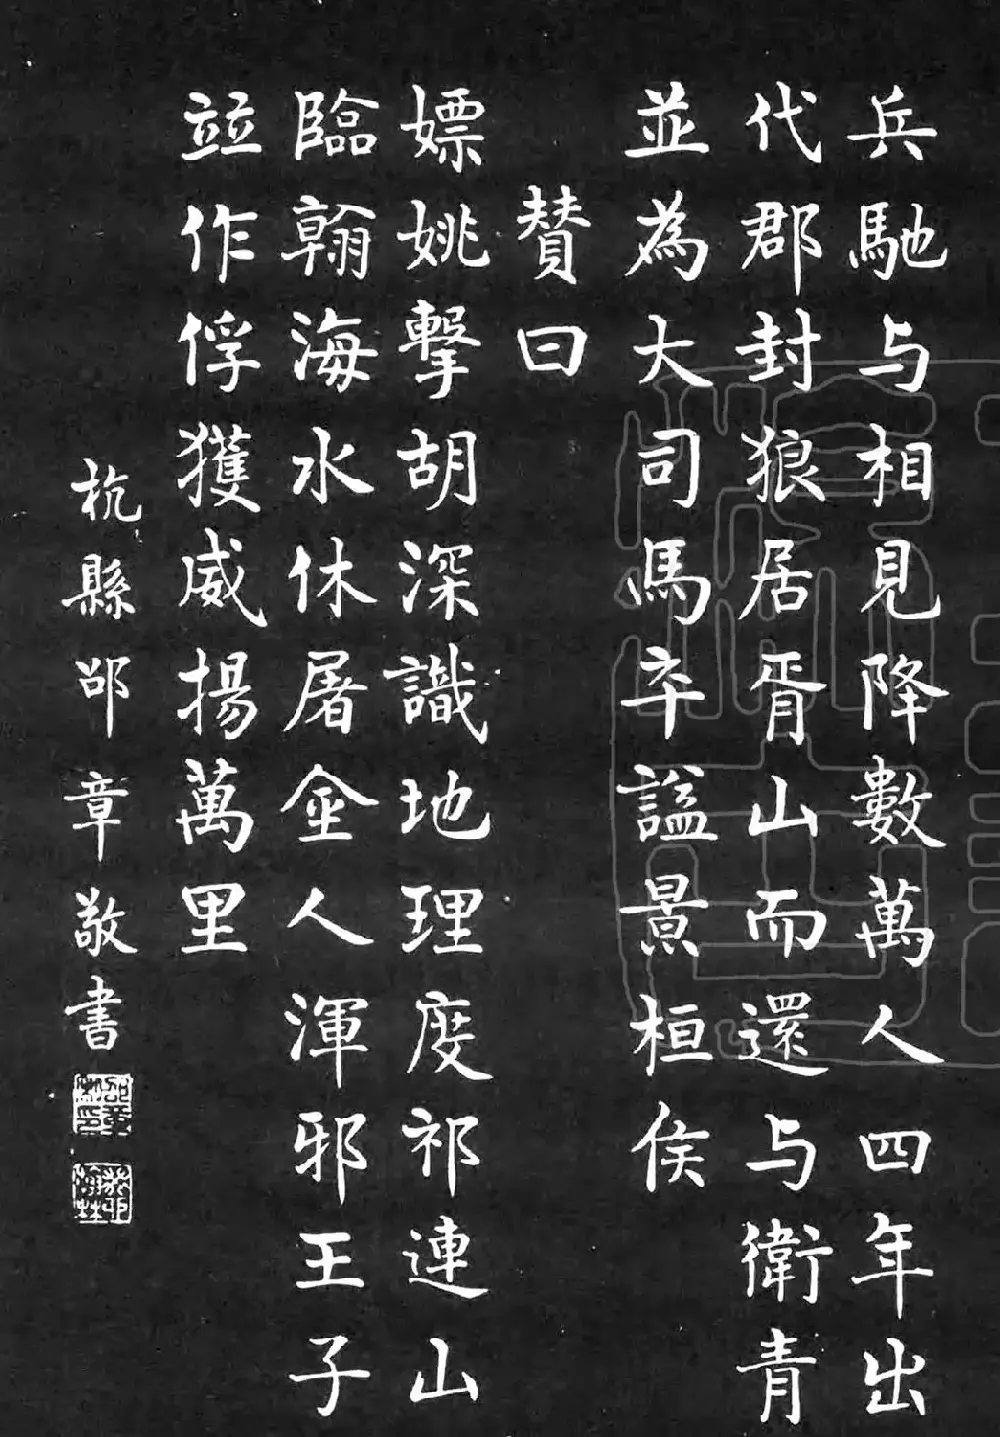 兵馳与相見降數萬人四年出
代郡封狼居胥山而還与衛青
並為大司馬卒謚景桓侯
贊曰
嫖姚擊胡深識地理度祁連山
臨翰海水休屠金人渾邪王子
竝作俘獲威揚萬里
杭縣邵章敬書
邵章之印